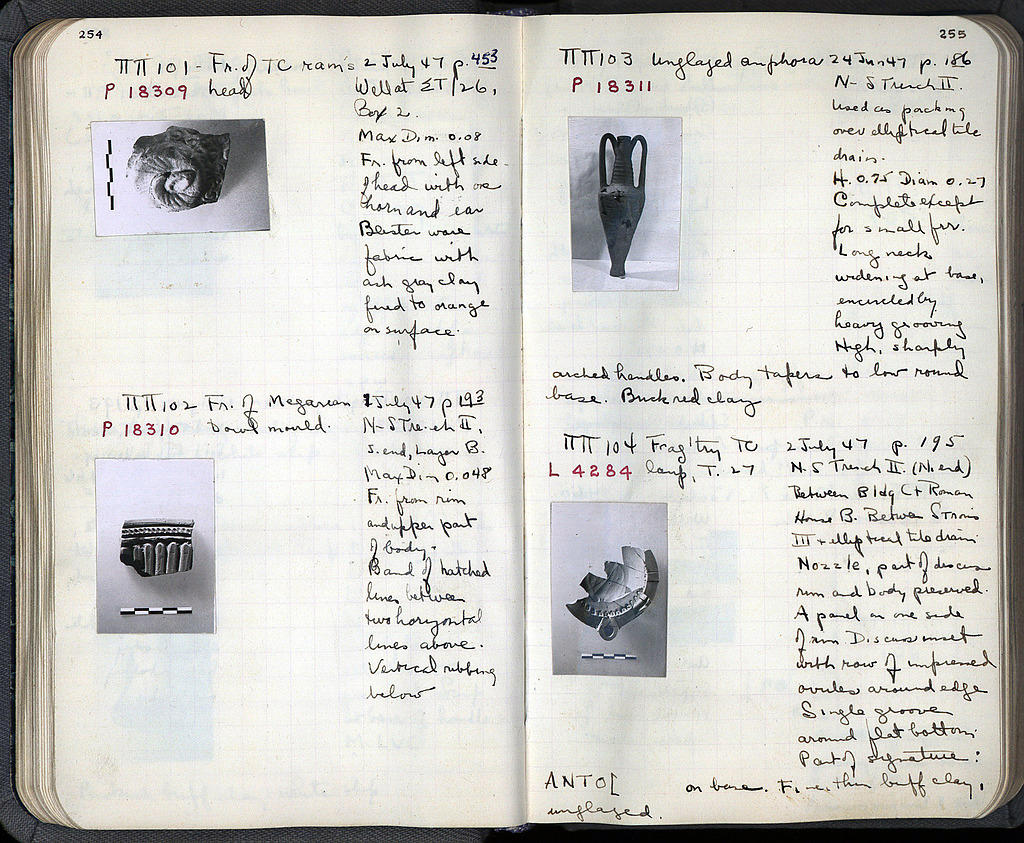 254
ΠΠ 101 - Fr. of TC ram's 2 July 47 p. 453
P 18309 head Well at ΣT/26,
Box 2.
Max Dim. 0.08
Fr. from left side
of head with one
horn and ear
Blister ware
fabric with
ash gray clay
fired to orange
on surface.
ΠΠ 102 Fr. of Megarian 1 July 47 p 193
P 18310 bowl mould. N-S Trench II,
S. end, Layer B.
Max Dim 0.048
Fr. from rim
and upper part
of body.
Band of hatched
lines between
two horizontal
lines above.
Vertical ribbing
below
255
ΠΠ 103 Unglazed amphora 24 Jun 47 p. 186
P 18311 N-S Trench II.
Used as packing
over elliptical tile
drain.
H. 0.75 Diam 0.27
Complete except
for small frr.
Long neck
widening at base,
encircled by
heavy grooving
High, sharply
arched handles. Body tapers to low round
base. Buck red clay
ΠΠ 104 Frag'try TC 2 July 47 p. 195
L 4284 lamp, T. 27 N-S Trench II. (N. end)
Between Bldg C + Roman
House B. Between Strosis
III + elliptical tile drain
Nozzle, part of discus
rim and body preserved.
A panel on one side
of rim Discus inset
with row of impressed
ovules around edge
Single groove
around flat bottom.
Part of signature:
ANTO[ on base. Fine, thin buff clay,
unglazed.